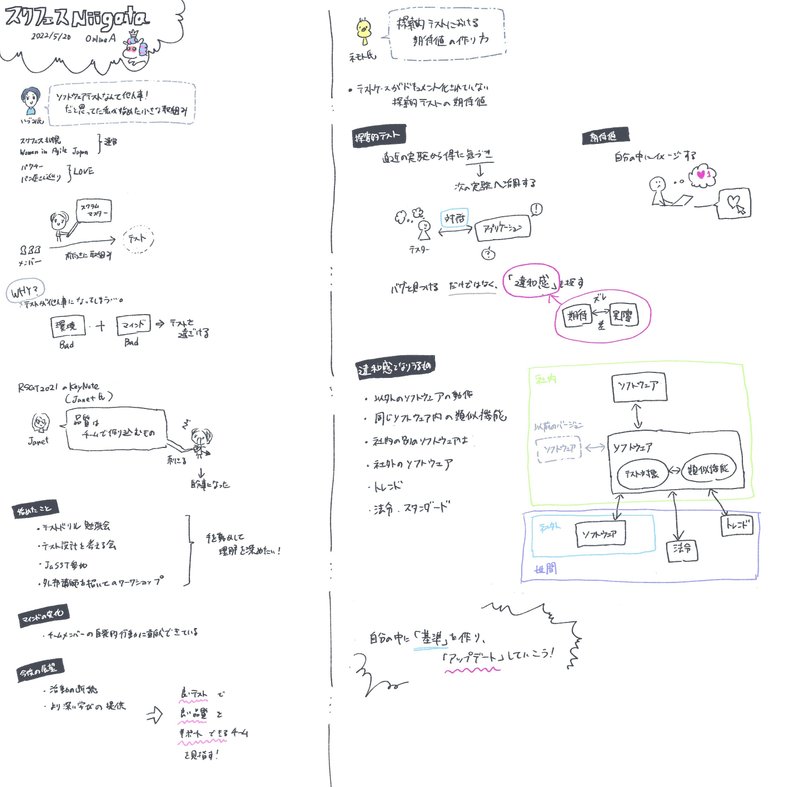 スクフェス Niigata
2022/5/20 Online A
ソフトウェアテストなんて他人事!
だと思ってた私が始めた小さな取組み
スクフェス札幌
Women in Agile Japan
運営
バクラー
LOVE
スクラム
マスター
メンバー
前向きに取組み
テスト
WHY?
テストが他人事になってしまう…。
環境
+
マインド
Bad
Bad
テストを
遠ざける
RSGT2021 の KeyNote
(Janet氏)
Janet
品質は
チームで作り込むもの
刺さる
自分事になった
始めたこと
・テストドリル 勉強会
・テスト設計を考える会
・JaSST参加
・外部講師を招いてのワークショップ
手を動かして
理解を深めたい!
マインドの変化
・チームメンバーの自発的行動に貢献できている
今後の展望
・活動の継続
・より深い学びの提供
良いテスト で
良い品質 を
サポート できる チーム
を目指す!
ネモト氏
探索的テストにおける
期待値の作り方
・テストケースがドキュメント化されていない
探索的テストの期待値
探索的テスト
直近の実験から得た気づき
次の実験へ活用する
テスター
対話
アプリケーション
!
?
期待値
自分の中にイメージする
バグを見つける だけではなく、「違和感」を探す
期待
ズレ
差
実際
違和感となりうるもの
・以前のソフトウェアの動作
・同じソフトウェア内の類似機能
・社内の別のソフトウェアは
・社外のソフトウェア
・トレンド
・法令、スタンダード
社内
ソフトウェア
以前のバージョン
ソフトウェア
ソフトウェア
テスト対象
類似機能
社外
ソフトウェア
法令
トレンド
世間
自分の中に「基準」を作り、
「アップデート」していこう!